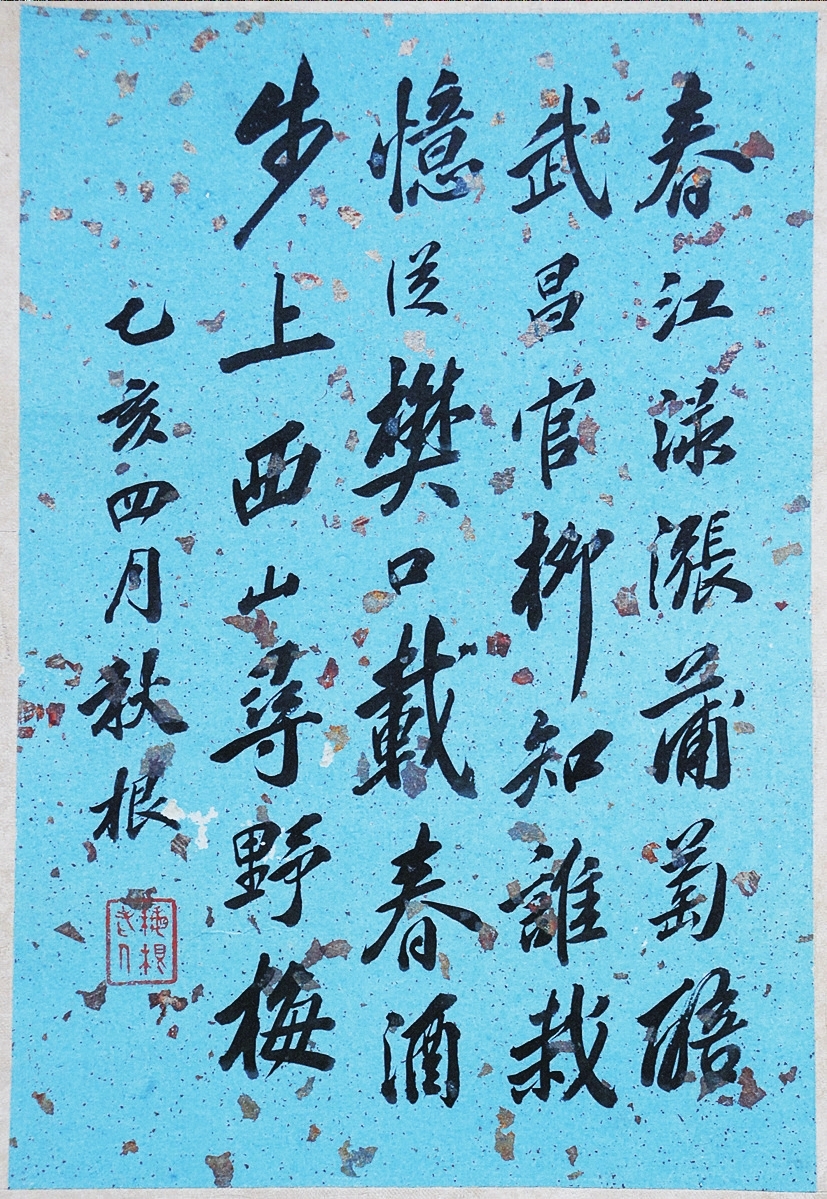 春江渌漲蒲萄醅
武昌官柳知誰栽
憶從樊口載春酒
步上西山尋野梅
乙亥四月秋根